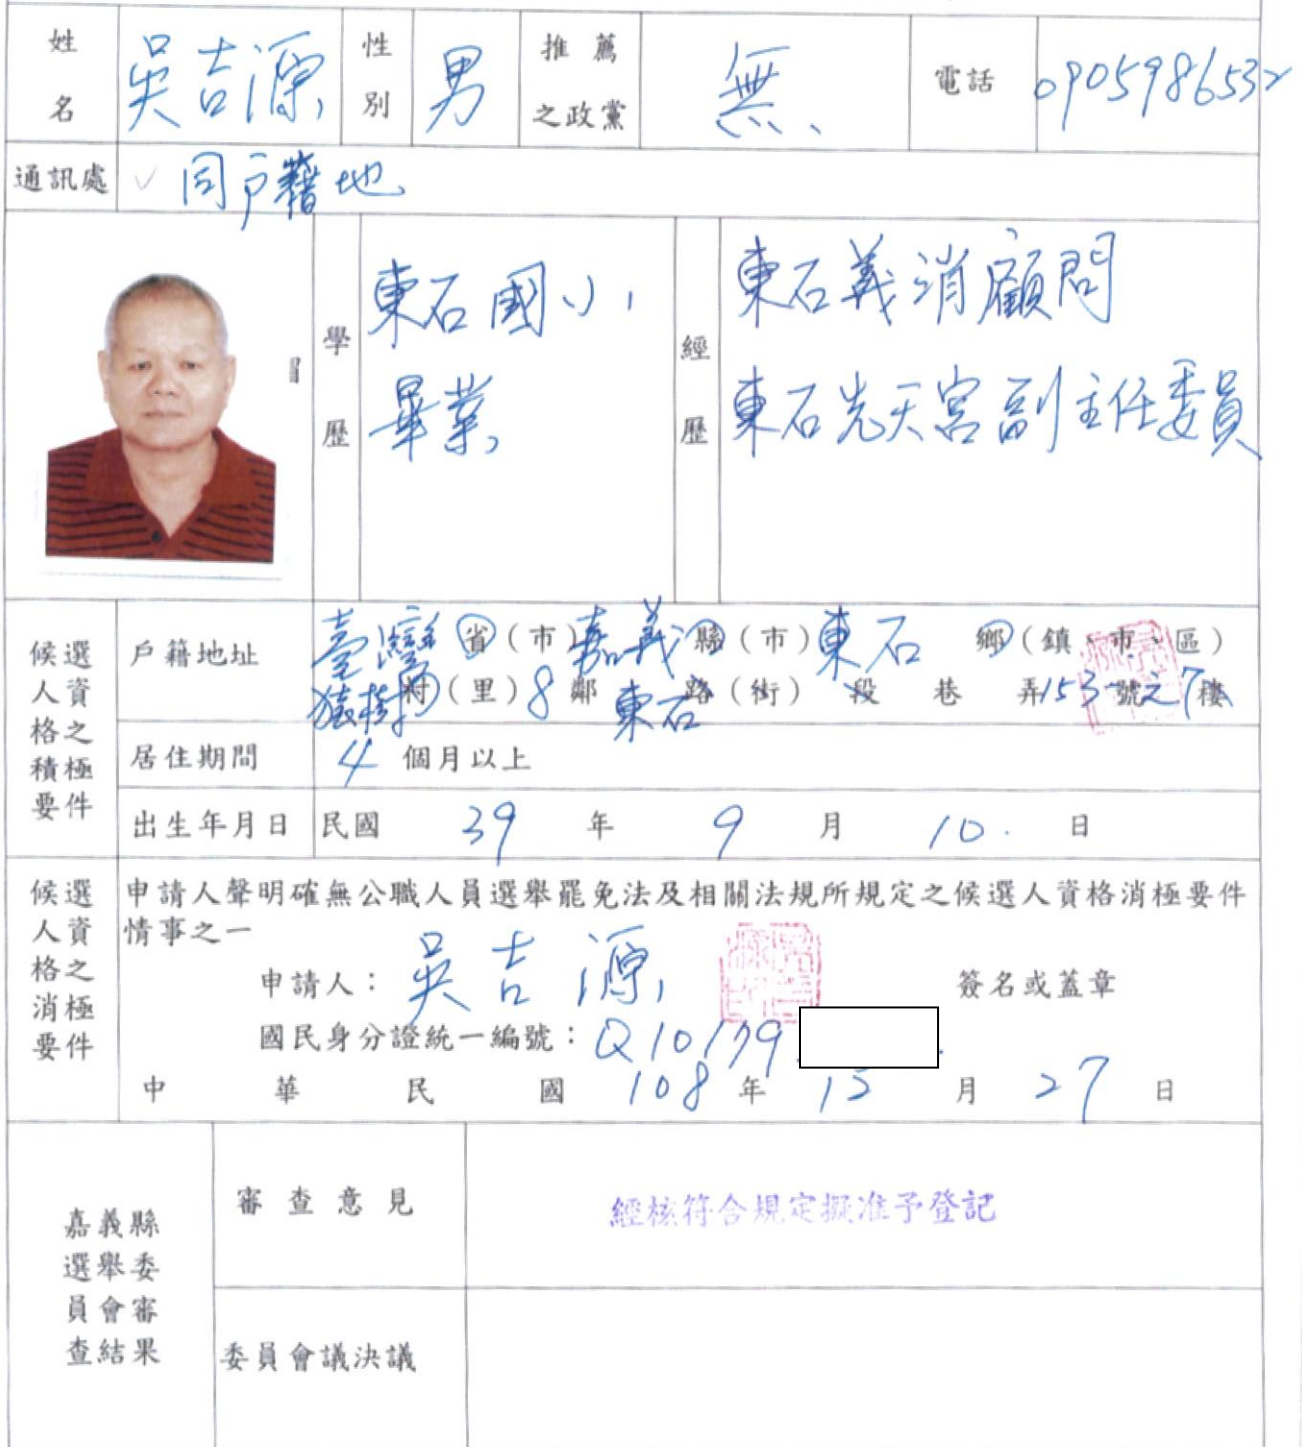 姓名 吳吉源 性別 男 推薦之政黨 無 電話 0905986532
通訊處 同戶籍地
學歷 東石國小
畢業
經歷 東石義消顧問
東石先天宮副主任委員
候選人資格之積極要件
戶籍地址 臺灣省(市)嘉義縣(市)東石鄉(鎮、市、區)
猿樹村(里)8鄰東石路(街)段巷弄153號之7樓
居住期間 4個月以上
出生年月日 民國39年9月10日
候選人資格之消極要件
申請人聲明確無公職人員選舉罷免法及相關法規所規定之候選人資格消極要件
情事之一
申請人:吳吉源 簽名或蓋章
國民身分證統一編號:Q10179
中華民國108年12月27日
嘉義縣選舉委員會審查結果
審查意見 經核符合規定擬准予登記
委員會議決議